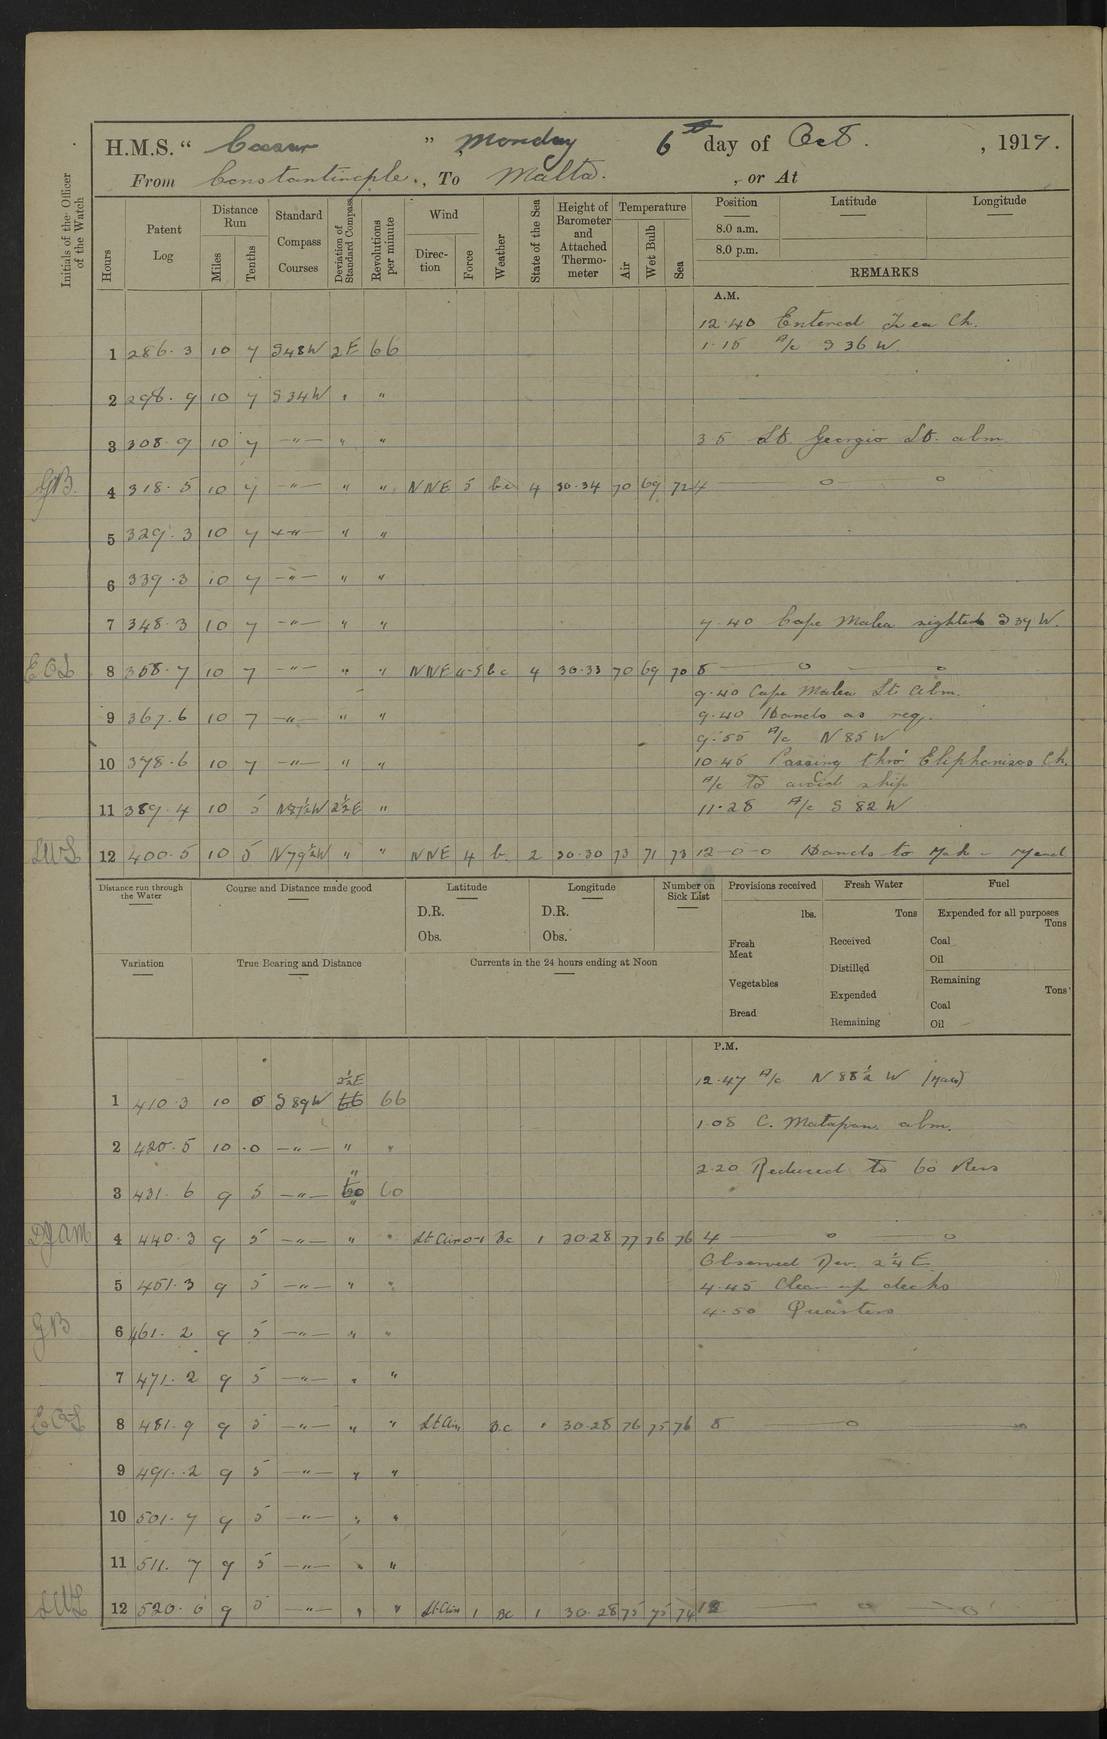 H.M.S. “ Caesar ” Monday 6th day of Oct. , 1919.
From Constantinople. , To Malta. , or At
Initials of the Officer of the Watch
Hours
Patent Log
Distance Run
Miles
Tenths
Standard Compass Courses
Deviation of Standard Compass
Revolutions per minute
Wind
Direc-tion
Force
Weather
State of the Sea
Height of Barometer and Attached Thermo-meter
Temperature
Air
Wet Bulb
Sea
Position Latitude Longitude
8.0 a.m.
8.0 p.m.
REMARKS
A.M.
12.40 Entered Zea Ch.
1 286.3 10 7 S48W 2E 66 1.15 A/c S 36 W.
2 298.9 10 7 S34W " "
3 308.9 10 7 —"— " " 3 5 St. Georgio St. abm
GB. 4 318.5 10 7 —"— " " NNE 5 bc 4 30.34 70 69 72 4 — o — o
5 329.3 10 7 —"— " "
6 339.3 10 7 —"— " "
7 348.3 10 7 —"— " " 7.40 Cape Malea sighted S 39 W.
8 358.7 10 7 —"— " " NNE 4-5 bc 4 30.33 70 69 70 8 — o — o
9.40 Cape Malea Lt. abm.
9 367.6 10 7 —"— " " 9.40 Hands as req.
9.55 A/c N 85 W
10 378.6 10 7 —"— " " 10.45 Passing thro' Eliphonisos Ch.
A/c to avoid ship
11 389.4 10 5 2½E " 11.28 A/c S 82 W
12 400.5 10 5 N79½W " " NNE 4 b. 2 30.30 73 71 73 12-0-0 Hands to Mak - Mend
Distance run through the Water
Course and Distance made good
Latitude
D.R.
Obs.
Longitude
D.R.
Obs.
Number on Sick List
Provisions received
lbs.
Fresh Meat
Vegetables
Bread
Fresh Water
Tons
Received
Distilled
Expended
Remaining
Fuel
Expended for all purposes
Tons
Coal
Oil
Remaining
Tons
Coal
Oil
Variation
True Bearing and Distance
Currents in the 24 hours ending at Noon
P.M.
12.47 A/c N 88½ W (Mag)
2½E
1 410.3 10 0 S89W 66 66
1.08 C. Matapan. abm.
2 420.5 10 .0 —"— " "
2.20 Reduced to 60 Revs
3 431.6 9 5 —"— 60 60
4 440.3 9 5 —"— " " Lt Airs 0-1 Bc 1 30.28 77 76 76 4 o o
Observed Dev. 2¼ E
5 451.3 9 5 —"— " " 4.45 Clear up decks
4.50 Quarters
GB 6 461.2 9 5 —"— " "
7 471.2 9 5 —"— " "
8 481.9 9 5 —"— " " Lt Airs Bc " 30.28 76 75 76 8 — o — o
9 491.2 9 5 —"— " "
10 501.7 9 5 —"— " "
11 511.7 9 5 —"— " "
12 520.6 9 5 —"— " " Lt Airs 1 Bc 1 30.28 75 75 74 12 — o — o